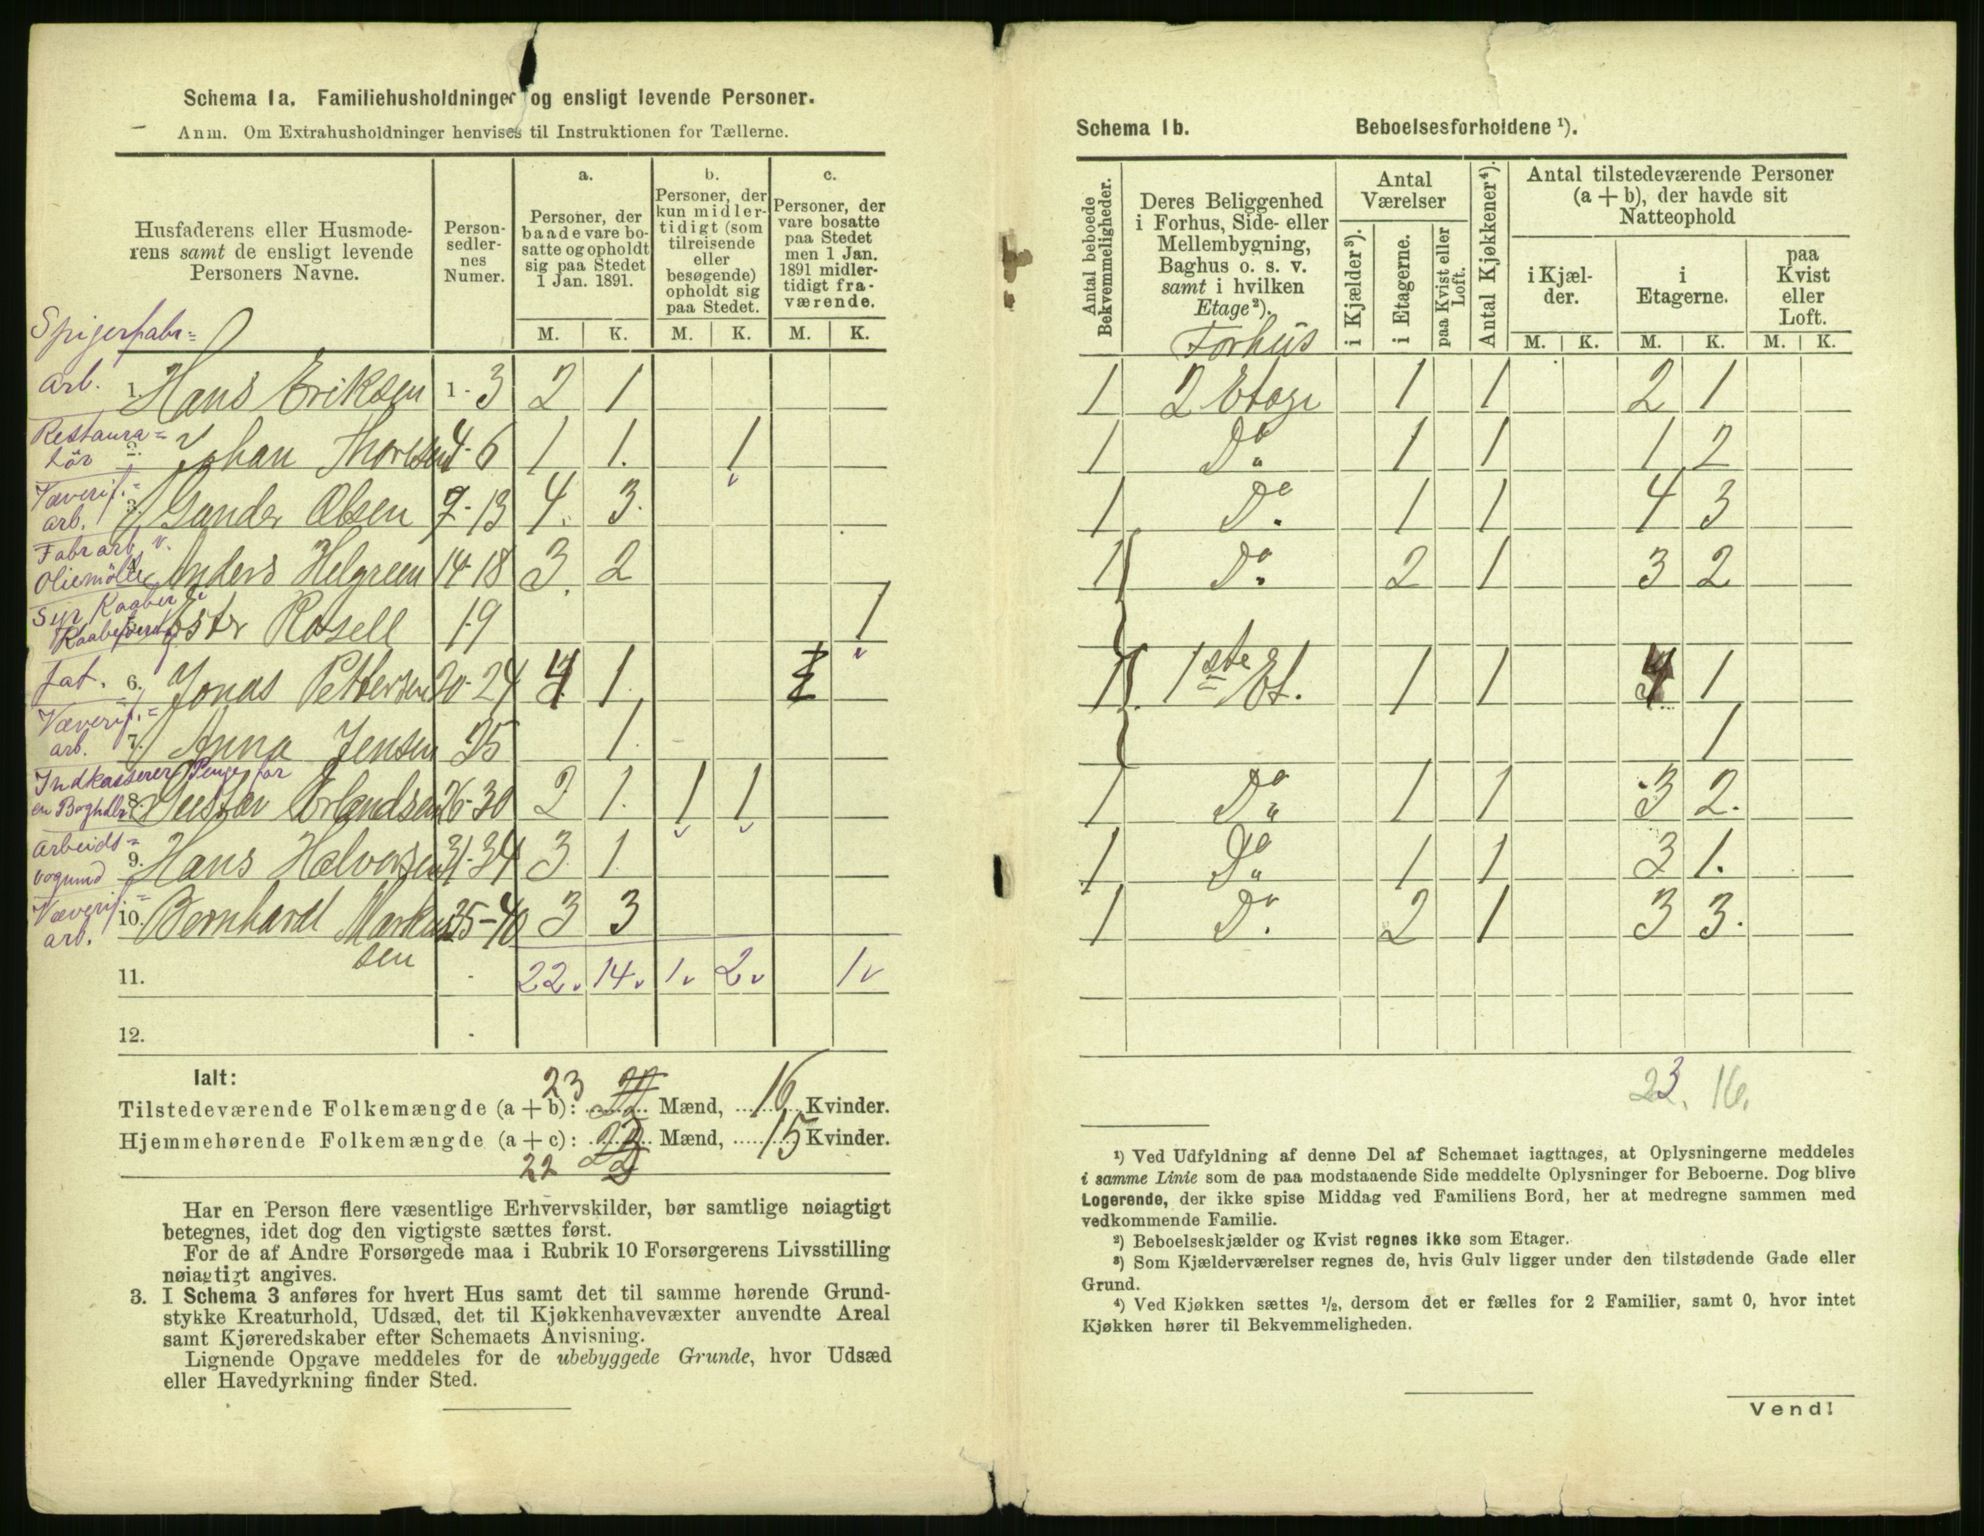 Schema 1a. Familiehusholdninger og ensligt levende Personer.
Anm. Om Extrahusholdninger henvises til Instruktionen for Tællerne.
Husfaderens eller Husmoderens samt de ensligt levende Personers Navne.
Personsedlernes Numer.
a. Personer, der baade vare bosatte og opholdt sig paa Stedet 1 Jan. 1891.
b. Personer, der kun midlertidigt (som tilreisende eller besøgende) opholdt sig paa Stedet.
c. Personer, der vare bosatte paa Stedet men 1 Jan. 1891 midlertidigt fraværende.
M. K. M. K. M. K.
Spigerfabr=
arb. 1. Hans Eriksen 1-3 2 1
Restaura=
tör 2. Johan Thorlsen 4-6 1 1. 1
Væverif.=
arb. 3. Gunder Olsen 7-13 4. 3.
Fabrarb. v.
Oliemölle Anders Helgreen 14-18 3. 2
Syr Kaaber i
Ester Rosell 19 1
fat. 6. Jonas Pettersen 20-24 4 1
Væverif.=
arb. 7. Anna Jensen 25 1.
Indkasserer Penge for
en Boghdlr 8. Gustav Erlandsen 26-30 2 1. 1 1
Arbeids=
9. Hans Halvorsen 31-34 3. 1.
Væverif.=
arb. 10. Bernhardt Markussen 35-40 3 3
11. 22. 14. 1. 2. 1
12.
Ialt:
Tilstedeværende Folkemængde (a + b): 23 Mænd, 16 Kvinder.
Hjemmehørende Folkemængde (a + c): 22 Mænd, 15 Kvinder.
Har en Person flere væsentlige Erhvervskilder, bør samtlige nøiagtigt
betegnes, idet dog den vigtigste sættes først.
For de af Andre Forsørgede maa i Rubrik 10 Forsørgerens Livsstilling
nøiagtigt angives.
3. I Schema 3 anføres for hvert Hus samt det til samme hørende Grund-
stykke Kreaturhold, Udsæd, det til Kjøkkenhavevæxter anvendte Areal
samt Kjøreredskaber efter Schemaets Anvisning.
Lignende Opgave meddeles for de ubebyggede Grunde, hvor Udsæd
eller Havedyrkning finder Sted.
Schema 1b. Beboelsesforholdene ¹).
Antal beboede Bekvemmeligheder.
Deres Beliggenhed i Forhus, Side- eller Mellembygning, Baghus o. s. v. samt i hvilken Etage²).
Antal Værelser
i Kjælder³).
i Etagerne.
paa Kvist eller Loft.
Antal Kjøkkener⁴).
Antal tilstedeværende Personer (a + b), der havde sit Natteophold
i Kjælder.
i Etagerne.
paa Kvist eller Loft.
M. K. M. K. M. K.
Forhus
1 2 Etage 1 1 2 1
1 Do 1 1 1 2
1 Do. 1 1 4 3
1 Do. 2 1 3 2
1 1ste Et. 1 1 4 1
1
1 Do 1 1 3 2.
1 Do 1 1 3 1.
1 Do. 2 1 3 3.
23. 16.
¹) Ved Udfyldning af denne Del af Schemaet iagttages, at Oplysningerne meddeles
i samme Linie som de paa modstaaende Side meddelte Oplysninger for Beboerne. Dog blive
Logerende, der ikke spise Middag ved Familiens Bord, her at medregne sammen med
vedkommende Familie.
²) Beboelseskjælder og Kvist regnes ikke som Etager.
³) Som Kjælderværelser regnes de, hvis Gulv ligger under den tilstødende Gade eller
Grund.
⁴) Ved Kjøkken sættes ½, dersom det er fælles for 2 Familier, samt 0, hvor intet
Kjøkken hører til Bekvemmeligheden.
Vend!